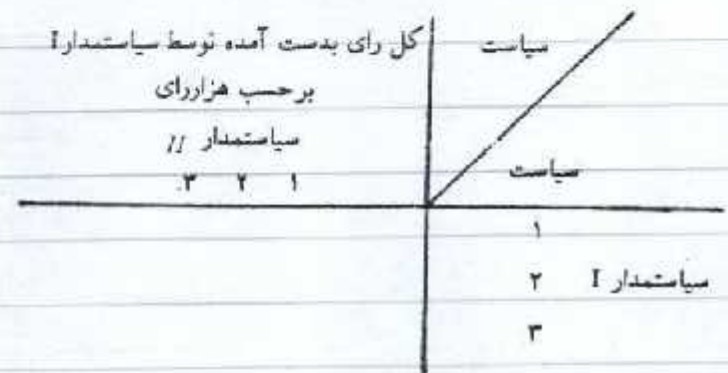 سیاست
کل رای بدست آمده توسط سیاستمدار I
بر حسب هزاررای
سیاستمدار II
سیاست
۱ ۲ ۳
۱
سیاستمدار I ۲
۳